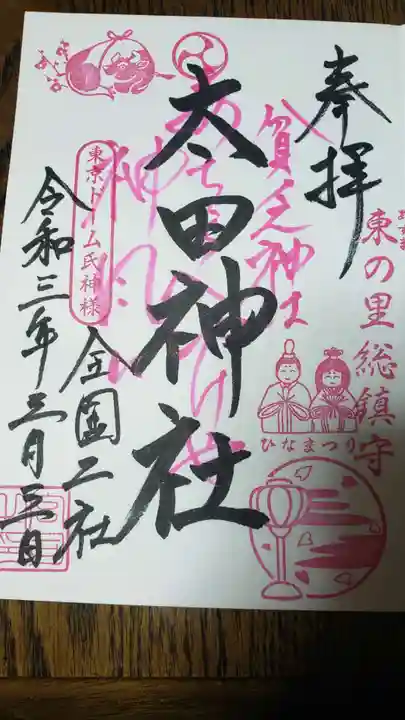 奉拝
東の里総鎮守
あずま
貧乏神は
ひなまつり
太田神社
東京ドーム氏神様
全国二社
令和三年三月三日